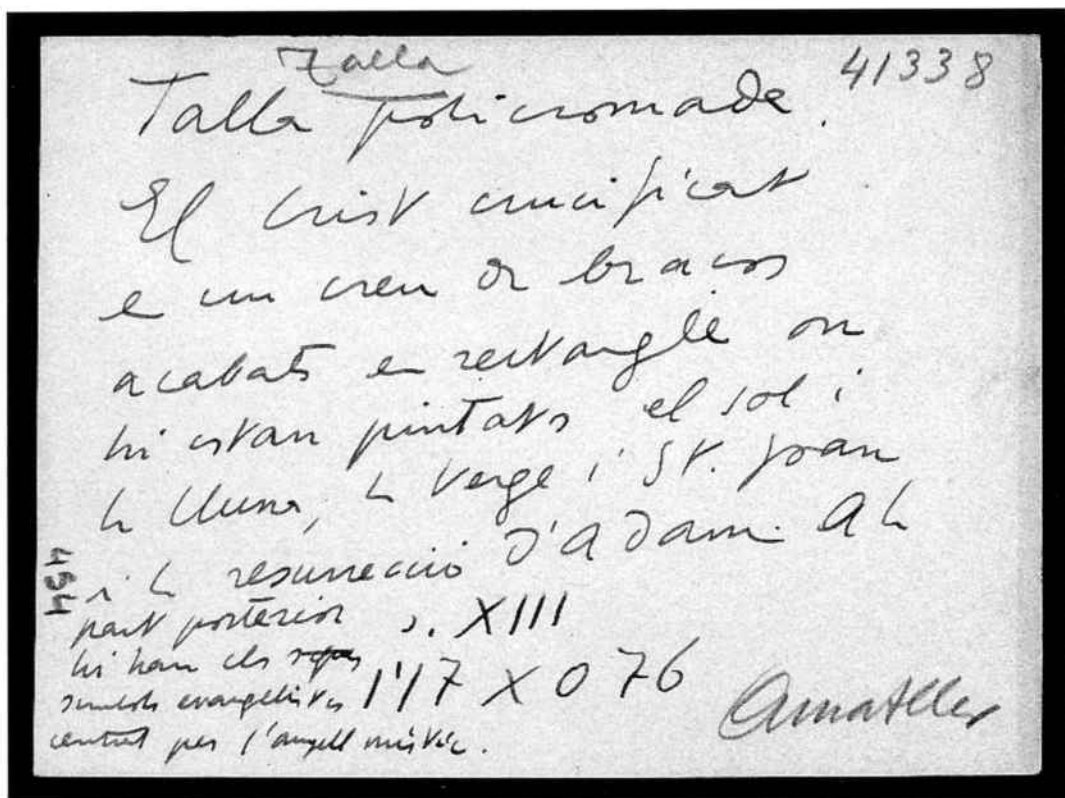 Talla
41338
Talla policromada.
El Crist crucificat
e un creu de braços
acabats en rectangle on
hi estan pintats el sol i
la lluna, la Verge i St. Joan
i la resurrecció d'Adam. A la
part posterior s. XIII
hi han els
simbols evangelistes 1'17 X 0 76
centrat per l'angell mistic.
Amatller
454